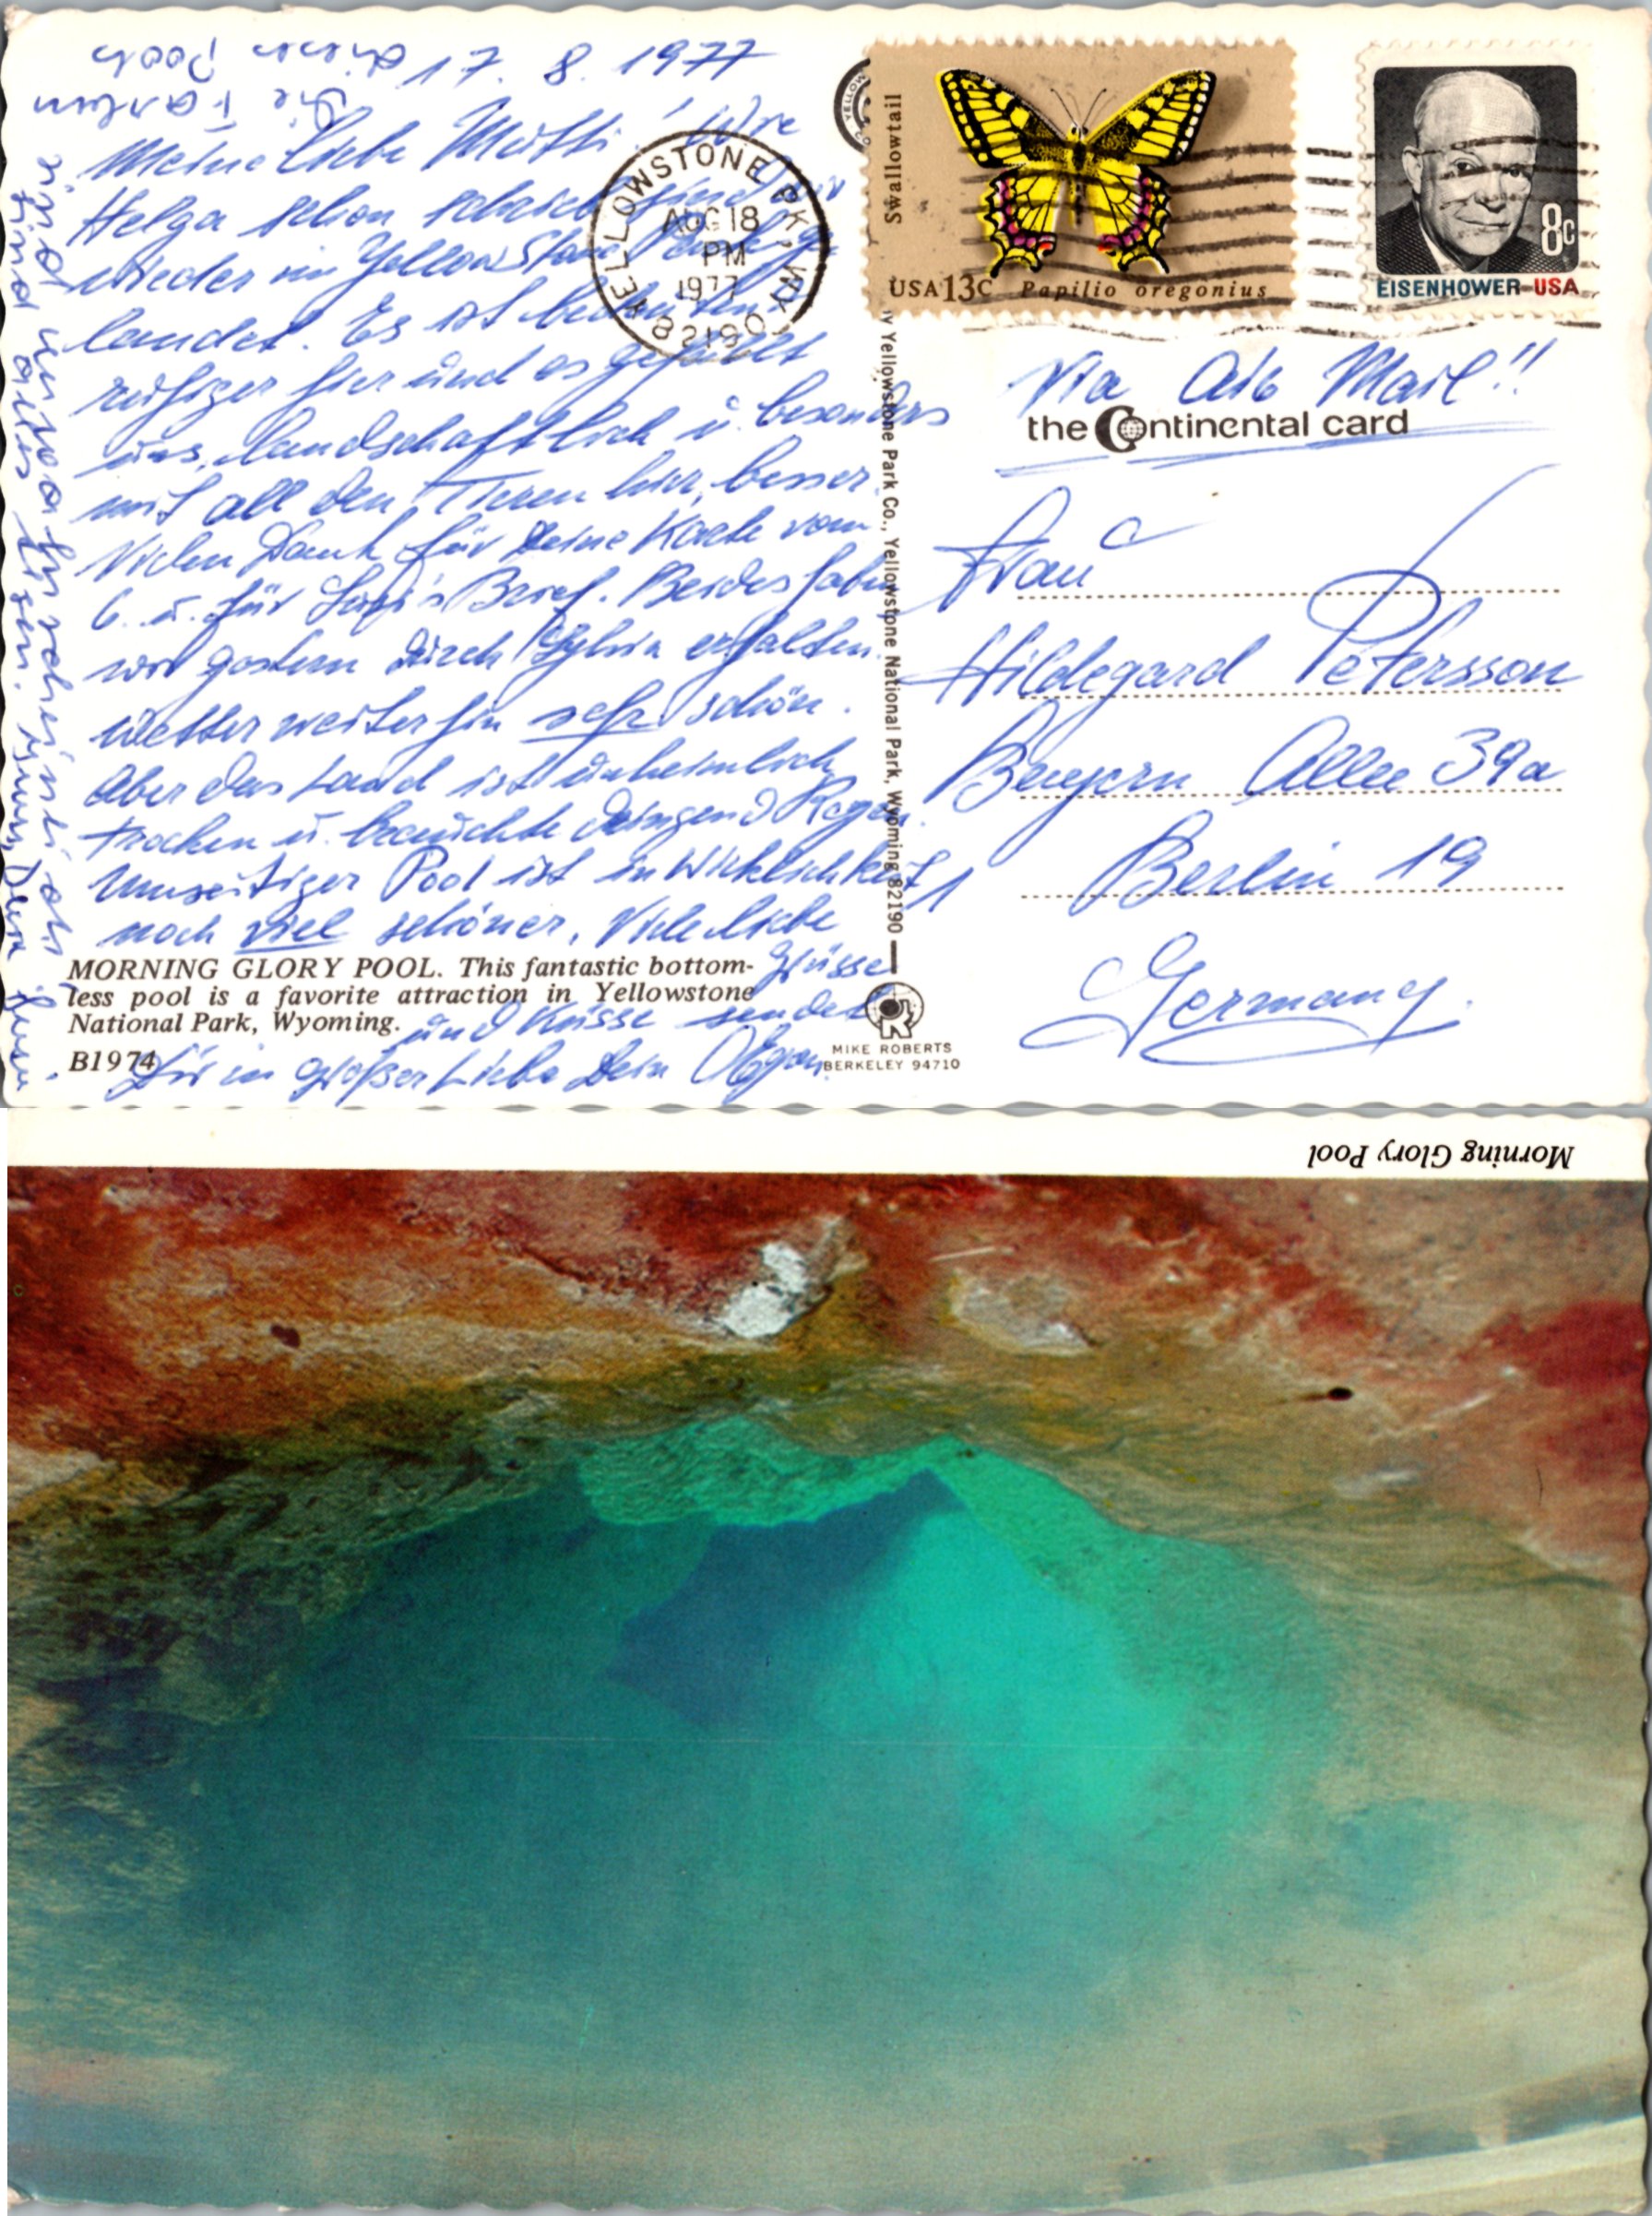 17. 8. 1977
Meine liebe Mutti! Wie
Helga schon schrieb sind wir
wieder im Yellowstone Park ge-
landet. Es ist bedeutend
ruhiger hier und es gefällt
uns, landschaftlich u. besonders
mit all den Tieren hier, besser.
Vielen Dank für Deine Karte vom
6. u. für Brief. Beides haben
wir gestern durch Sylvia erhalten.
Wetter weiterhin sehr schön.
Aber das Land ist unheimlich
trocken u. brauchte dringend Regen.
Umseitiger Pool ist in Wirklichkeit
noch viel schöner. Viele liebe
Grüsse
und Küsse sendet
Dir in großer Liebe Dein
Die Farben
dieser Pools
sind unwahrscheinlich
MORNING GLORY POOL. This fantastic bottom-
less pool is a favorite attraction in Yellowstone
National Park, Wyoming.
B1974
Yellowstone Park Co., Yellowstone National Park, Wyoming 82190
MIKE ROBERTS
BERKELEY 94710
YELLOWSTONE PK, WYO.
AUG 18
PM
1977
82190
Swallowtail
USA 13c Papilio oregonius
8c
EISENHOWER USA
Via Air Mail!!
the Continental card
Frau
Hildegard Petersson
Bayern Allee 39a
1 Berlin 19
Germany
Morning Glory Pool